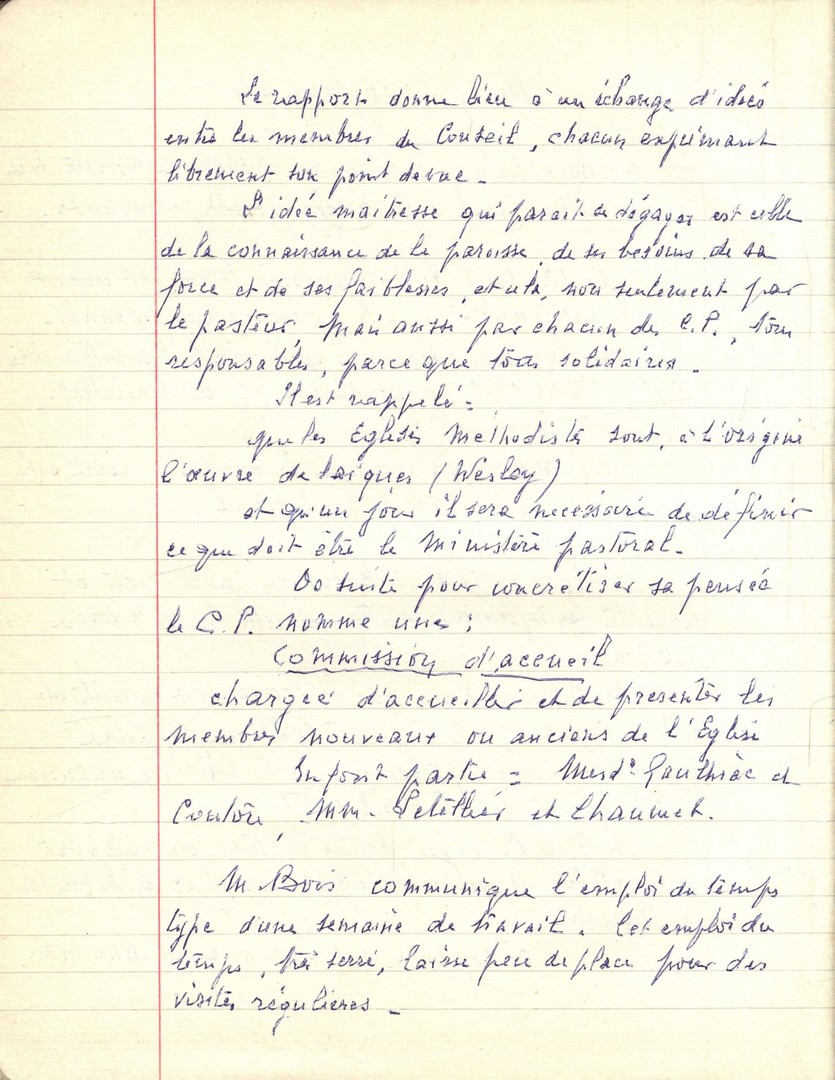 Le rapport donne lieu à un échange d'idées
entre les membres du Conseil, chacun exprimant
librement son point de vue -
L'idée maitresse qui parait se dégager est celle
de la connaissance de la paroisse, de ses besoins, de sa
force et de ses faiblesses, et cela, non seulement par
le pasteur, mais aussi par chacun des C.P., tous
responsables, parce que tous solidaires -
Il est rappelé =
que les Eglises Methodistes sont, à l'origine
l'œuvre de laïques (Wesley)
et qu'un jour il sera necessaire de définir
ce que doit être le Ministère pastoral -
De suite pour concrétiser sa pensée
le C.P. nomme une :
Commission d'accueil
chargée d'accueillir et de presenter les
membres nouveaux ou anciens de l'Eglise
En font partie = Mesd. et
MM. et Chaumet.
M. Bois communique l'emploi du temps
type d'une semaine de travail. Cet emploi du
temps, très serré, laisse peu de place pour des
visites régulières -